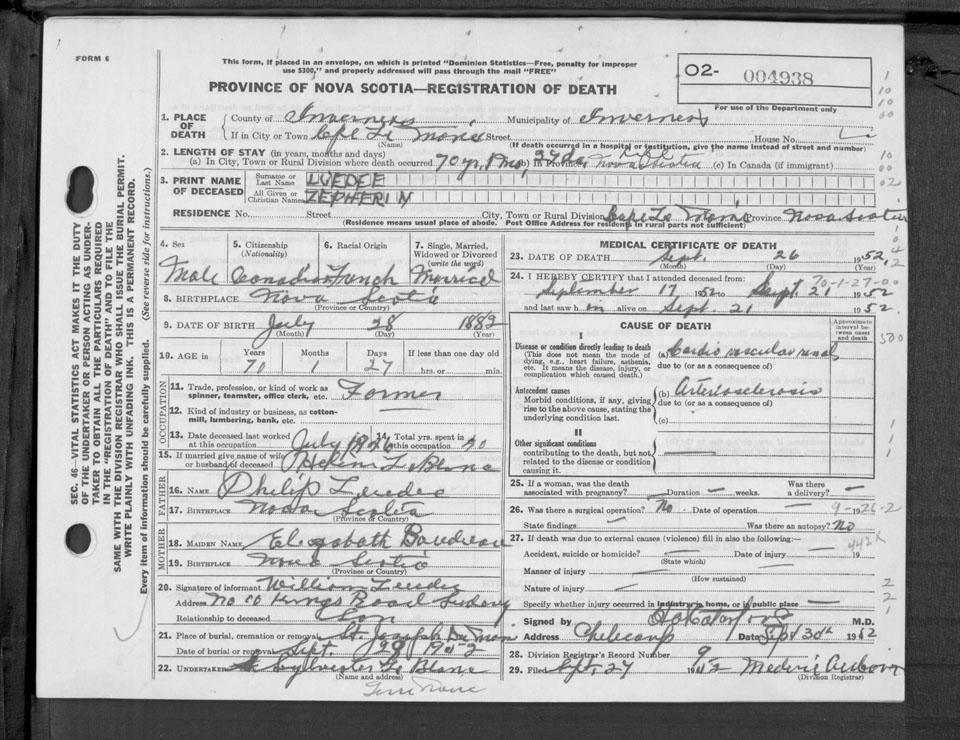 FORM 6
This form, if placed in an envelope, on which is printed "Dominion Statistics—Free, penalty for improper
use $300," and properly addressed will pass through the mail "FREE"
O2- 004938
For use of the Department only
PROVINCE OF NOVA SCOTIA—REGISTRATION OF DEATH
SEC. 46—VITAL STATISTICS ACT MAKES IT THE DUTY
OF THE UNDERTAKER OR PERSON ACTING AS UNDER-
TAKER TO OBTAIN ALL THE PARTICULARS REQUIRED
IN THE "REGISTRATION OF DEATH" AND TO FILE THE
SAME WITH THE DIVISION REGISTRAR WHO SHALL ISSUE THE BURIAL PERMIT.
WRITE PLAINLY WITH UNFADING INK. THIS IS A PERMANENT RECORD.
Every item of information should be carefully supplied. (See reverse side for instructions.)
1. PLACE OF DEATH County of Inverness Municipality of Inverness
If in City or Town Cape Le Moine Street House No.
(Name) (If death occurred in a hospital or institution, give the name instead of street and number)
2. LENGTH OF STAY (in years, months and days)
(a) In City, Town or Rural Division where death occurred 70 yr, 1 mo, (b) In Province Nova Scotia (c) In Canada (if immigrant)
3. PRINT NAME OF DECEASED Surname or Last Name LUEDEE
All Given or Christian Names ZEPHERIN
RESIDENCE No. Street City, Town or Rural Division Cape Le Moine Province Nova Scotia
(Residence means usual place of abode. Post Office Address for residents in rural parts not sufficient)
4. Sex 5. Citizenship (Nationality) 6. Racial Origin 7. Single, Married, Widowed or Divorced (write the word)
Male Canadian French Married
8. BIRTHPLACE Nova Scotia
(Province or Country)
9. DATE OF BIRTH July 28 1882
(Month) (Day) (Year)
10. AGE in Years Months Days If less than one day old
70 1 27 hrs. or min.
OCCUPATION
11. Trade, profession, or kind of work as
spinner, teamster, office clerk, etc.
12. Kind of industry or business, as cotton-
mill, lumbering, bank, etc.
13. Date deceased last worked at this occupation July 1926 14. Total yrs. spent in this occupation 20
15. If married give name of wife or husband of deceased LeBlanc
FATHER
16. NAME Philip Luedee
17. BIRTHPLACE Nova Scotia
(Province or Country)
MOTHER
18. MAIDEN NAME Elizabeth Boudreau
19. BIRTHPLACE Nova Scotia
(Province or Country)
20. Signature of informant William Luedee
Address No 10 Kings Road Sydney
Relationship to deceased Son
21. Place of burial, cremation or removal St. Joseph Du Moin
Date of burial or removal Sept. 28 1952
22. UNDERTAKER Sylvester Le Blanc
(Name and address)
MEDICAL CERTIFICATE OF DEATH
23. DATE OF DEATH Sept. 26 1952
(Month) (Day) (Year)
24. I HEREBY CERTIFY that I attended deceased from: 20-1-27-00
September 17 1952 to Sept. 21 1952
and last saw h im alive on Sept. 21 1952.
CAUSE OF DEATH
Approximate interval between onset and death
I
Disease or condition directly leading to death (a) Cardio vascular renal
(This does not mean the mode of dying, e.g., heart failure, asthenia, etc. It means the disease, injury, or complication which caused death.) due to (or as a consequence of)
Antecedent causes (b) Arteriosclerosis
Morbid conditions, if any, giving rise to the above cause, stating the underlying condition last. due to (or as a consequence of)
(c)
II
Other significant conditions
contributing to the death, but not
related to the disease or condition
causing it.
500
25. If a woman, was the death Was there
associated with pregnancy? — Duration — weeks. a delivery? —
26. Was there a surgical operation? No Date of operation — 9-1926-2
State findings — Was there an autopsy? No
442X
27. If death was due to external causes (violence) fill in also the following:—
Accident, suicide or homicide? — Date of injury — 19
(State which)
Manner of injury —
(How sustained)
Nature of injury —
Specify whether injury occurred in industry, in home, or in public place —
Signed by M.D.
Address Cheticamp Date Sept 30th 1952
28. Division Registrar's Record Number 9
29. Filed Sept. 27 1952 Mederic Aucoin
(Division Registrar)